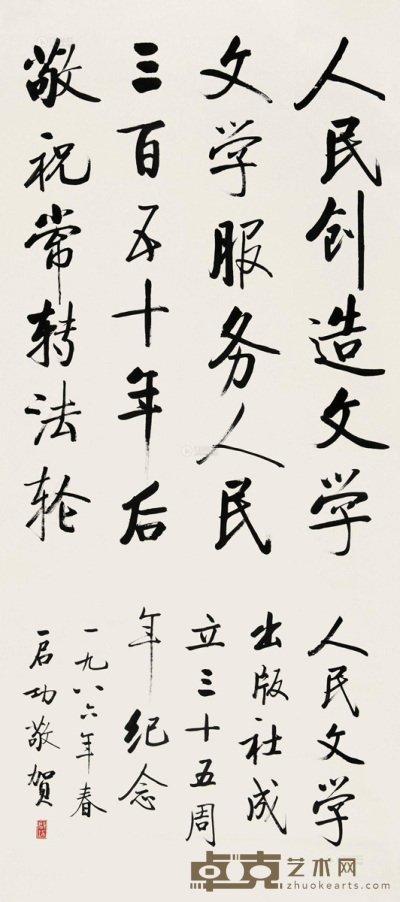 人民创造文学
文学服务人民
三百五十年后
敬祝常转法轮
人民文学
出版社成
立三十五周
年纪念
一九八六年春
启功敬贺
卓克艺术网
zhuokearts.com